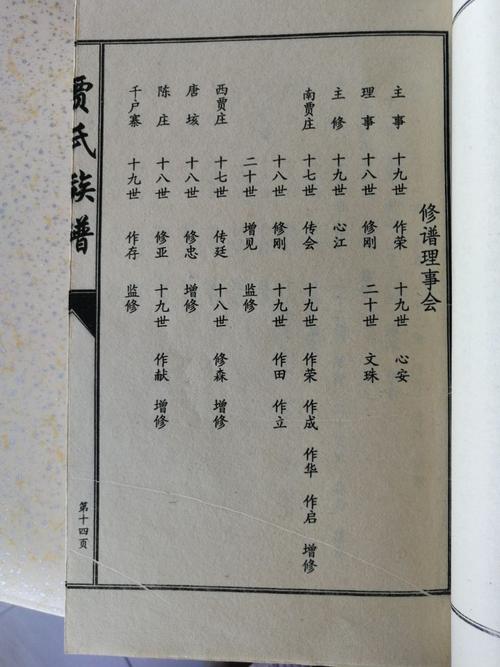 修谱理事会
主事 十九世 作荣 十九世 心安
理事 十八世 修刚 二十世 文珠
主修 十九世 心江
南贾庄 十七世 传会 十九世 作荣 作成 作华 作启 增修
十八世 修刚 十九世 作田 作立
二十世 增见 监修
西贾庄 十七世 传廷 十八世 修森 增修
唐垓 十八世 修忠 增修
陈庄 十八世 修亚 十九世 作献 增修
千户寨 十九世 作存 监修
贾氏族谱
第十四页